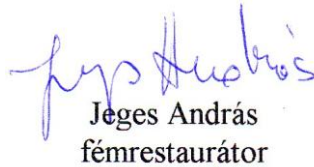 Jeges András
Jeges András
fémrestaurátor